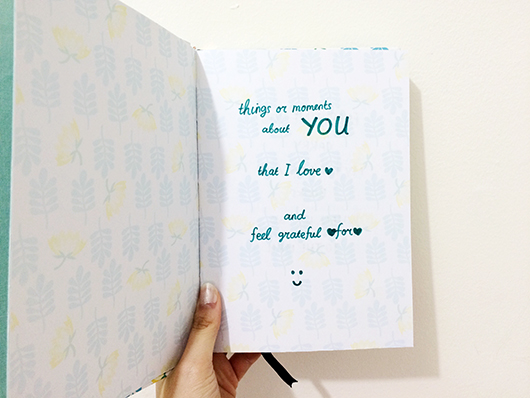 things or moments
about YOU
that I love ♥
and
feel grateful ♥for♥